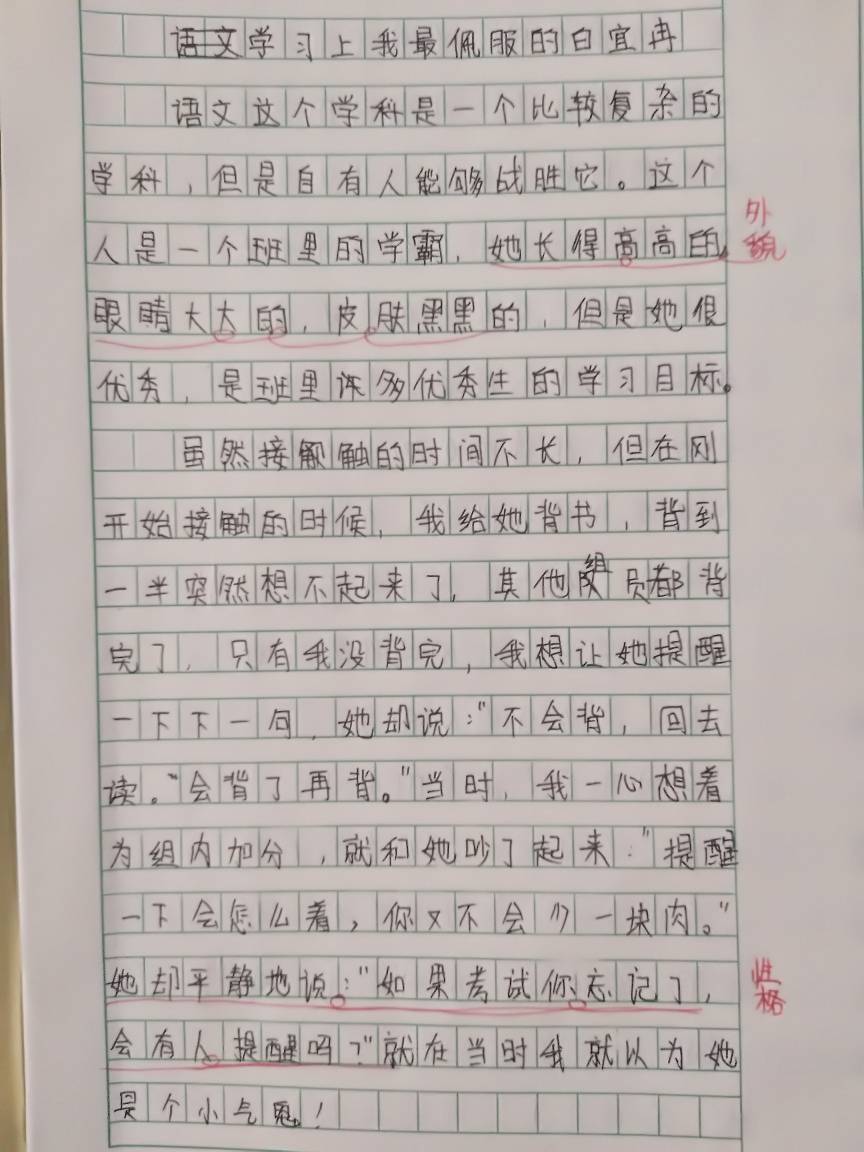 语文学习上我最佩服的白宜冉
语文这个学科是一个比较复杂的
学科，但是自有人能够战胜它。这个
人是一个班里的学霸，她长得高高的，
外貌
眼睛大大的，皮肤黑黑的，但是她很
优秀，是班里许多优秀生的学习目标。
虽然接触的时间不长，但在刚
开始接触的时候，我给她背书，背到
一半突然想不起来了，其他组员都背
完了，只有我没背完，我想让她提醒
一下下一句，她却说："不会背，回去
读。"会背了再背。"当时，我一心想着
为组内加分，就和她吵了起来："提醒
一下会怎么着，你又不会少一块肉。"
她却平静地说："如果考试你忘记了，
性格
会有人提醒吗？"就在当时我就以为她
是个小气鬼！